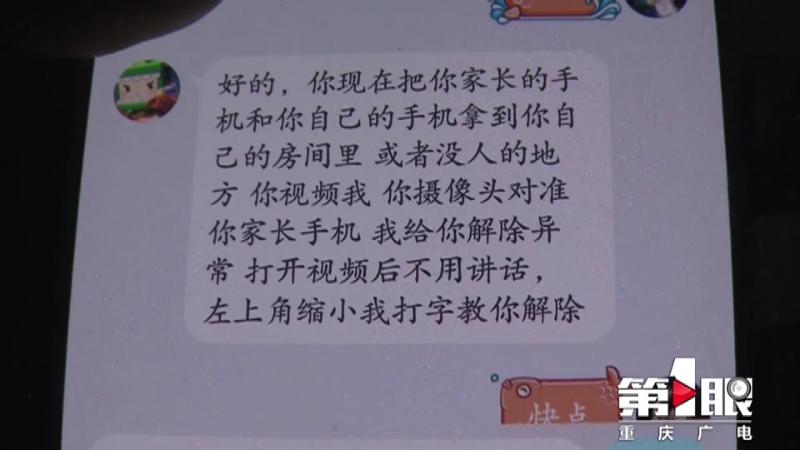 好的，你现在把你家长的手
机和你自己的手机拿到你自
己的房间里 或者没人的地
方 你视频我 你摄像头对准
你家长手机 我给你解除异
常 打开视频后不用讲话，
左上角缩小我打字教你解除
快点
第1眼
重庆广电